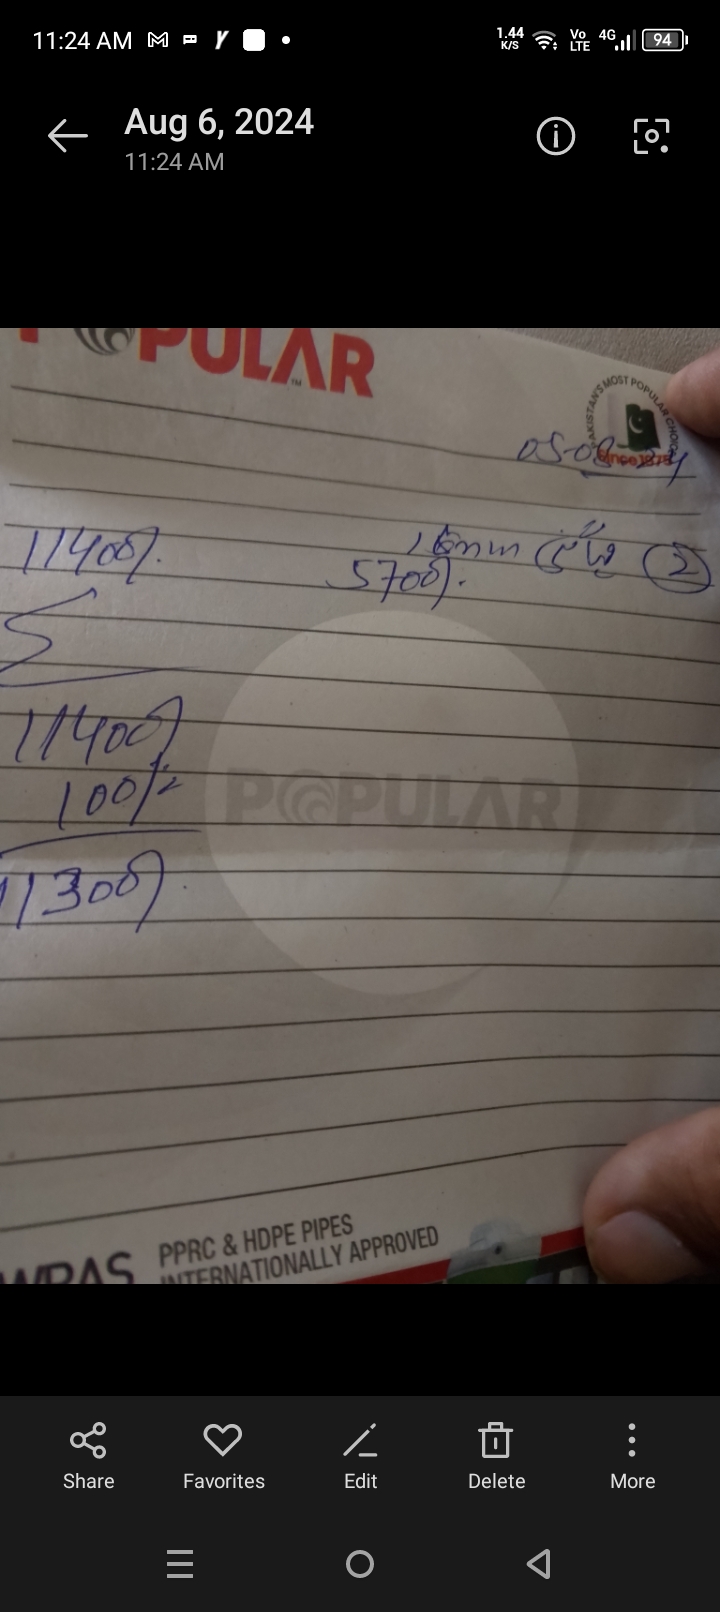 11:24 AM 1.44 K/S Vo LTE 4G 94
Aug 6, 2024
11:24 AM
POPULAR
PAKISTAN'S MOST POPULAR CHOICE
Since 1975
05-08-24
11400/. 16mm 2
5700/.
11400/
100/-
POPULAR
11300/.
WRAS PPRC & HDPE PIPES
INTERNATIONALLY APPROVED
Share Favorites Edit Delete More